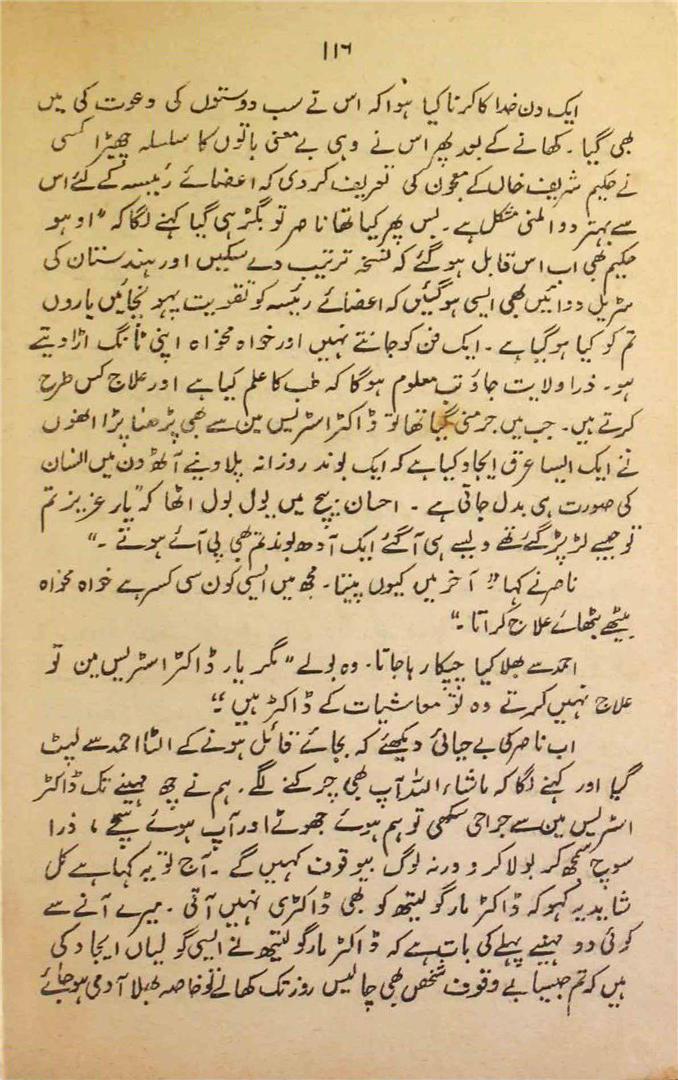 ۱۱۶
ایک دن خدا کا کرنا کیا ہوا کہ اس نے سب دوستوں کی دعوت کی میں
بھی گیا ۔ کھانے کے بعد پھر اس نے وہی بے معنی باتوں کا سلسلہ چھیڑا کسی
نے حکیم شریف خاں کے معجون کی تعریف کر دی کہ اعضائے رئیسہ کے لئے اس
سے بہتر دوا ملنی مشکل ہے ۔ بس پھر کیا تھا ناصر تو بگڑ ہی گیا کہنے لگا کہ "او ہو
حکیم بھی اب اس قابل ہو گئے کہ نسخہ ترتیب دے سکیں اور ہندستان کی
سڑیل دوائیں بھی ایسی ہو گئیں کہ اعضائے رئیسہ کو تقویت پہونچائیں یاروں
تم کو کیا ہو گیا ہے ۔ ایک فن کو جانتے نہیں اور خواہ مخواہ اپنی ٹانگ اڑا دیتے
ہو ۔ ذرا ولایت جاؤ تب معلوم ہو گا کہ طب کا علم کیا ہے اور علاج کس طرح
کرتے ہیں ۔ جب میں جرمنی گیا تھا تو ڈاکٹر اسٹریس مین سے بھی پڑھنا پڑا انھوں
نے ایک ایسا عرق ایجاد کیا ہے کہ ایک بوند روزانہ پلا دینے آٹھ دن میں انسان
کی صورت ہی بدل جاتی ہے ۔ احسان بیچ میں بول بول اٹھا کہ "یار عزیز تم
تو جیسے لڑ پڑ گئے تھے ویسے ہی آ گئے ایک آدھ بوند تم بھی پی آئے ہوتے ۔"
ناصر نے کہا "آخر میں کیوں پیتا ۔ مجھ میں ایسی کون سی کسر ہے خواہ مخواہ
بیٹھے بٹھائے علاج کراتا ۔"
احمد سے بھلا کیا چپکا رہا جاتا ۔ وہ بولے "مگر یار ڈاکٹر اسٹریس مین تو
علاج نہیں کرتے وہ تو معاشیات کے ڈاکٹر ہیں ۔"
اب ناصر کی بے حیائی دیکھئے کہ بجائے قائل ہونے کے الٹا احمد سے لپٹ
گیا اور کہنے لگا کہ ماشاء اللہ آپ بھی چرکنے لگے ۔ ہم نے چھ مہینے تک ڈاکٹر
اسٹریس مین سے جراحی سکھی تو ہم ہوئے جھوٹے اور آپ ہوئے سچے ، ذرا
سوچ سمجھ کر بولا کرو ورنہ لوگ بیوقوف کہیں گے ۔ آج تو یہ کہا ہے کل
شاید یہ کہو کہ ڈاکٹر مارگولیتھ کو بھی ڈاکٹری نہیں آتی ۔ میرے آنے سے
کوئی دو مہینے پہلے کی بات ہے کہ ڈاکٹر مارگولیتھ نے ایسی گولیاں ایجاد کی
ہیں کہ تم جیسا بے وقوف شخص بھی چالیس روز تک کھائے تو خاصہ بھلا آدمی ہو جائے